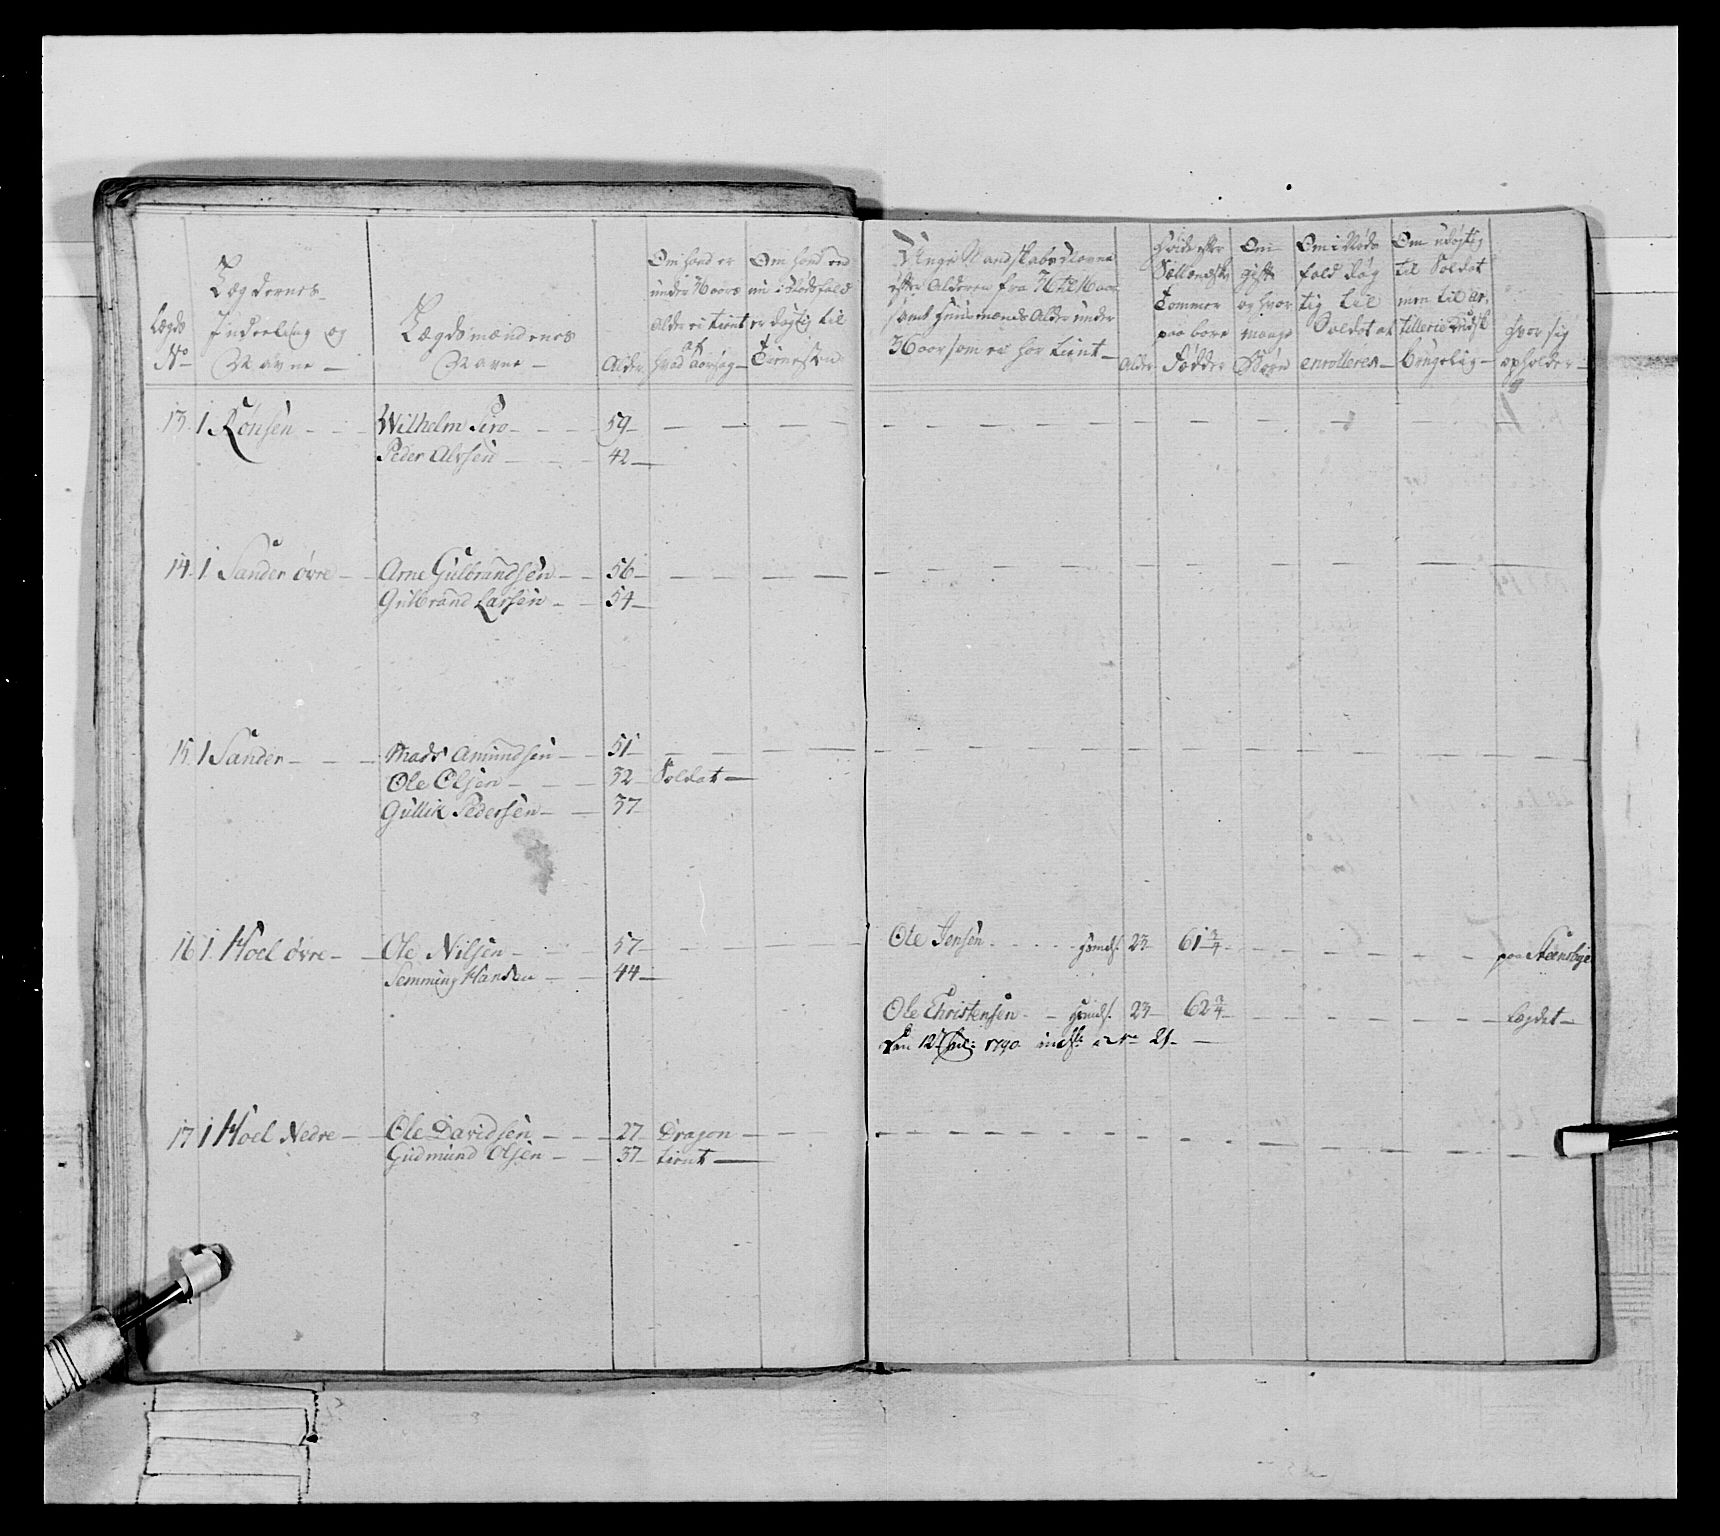 Lægds
No
Lægdernes
Indeeling og
Navne
Lægdsmændenes
Navne
Alder
Om hand er
under 36 aars
Alder ei tient
af
hvad aarsag
Om hand end
nu i Nødsfald
er døgtig til
Tienesten
Unge Mandskabs Navne
efter Alderen fra 36 til 16 aar
samt Huusmænds Alder under
36 aar som ei har tient
Alder
Høide efter
Sællandske
Tommer
paa bare
Fødder
Om
gift
og hvor
mange
Børn
Om i Nøds
fald døg
tig til
Soldat at
enrolleres
Om udøgtig
til Soldat
men til Ar,
tillerie Kudsk
brugelig
hvor sig
opholder
13 1 Rønsen Wilhelm Siro 59
Peder Alvsen 42
14 1 Sander øvre Arne Gulbrandsen 56
Gulbrand Larsen 54
15 1 Sander Mads Amundsen 51
Ole Olsen 32 Soldat
Gullik Pedersen 37
16 1 Hoel øvre Ole Nilsen 57 Ole Jensen 23 61 3/4 paa Steensbye
Semming Hansen 44
Ole Christensen 23 62 3/4 Lægdet
Den 12 1790 21
17 1 Hoel Nedre Ole Davidsen 27 Dragon
Gudmund Olsen 37 tient